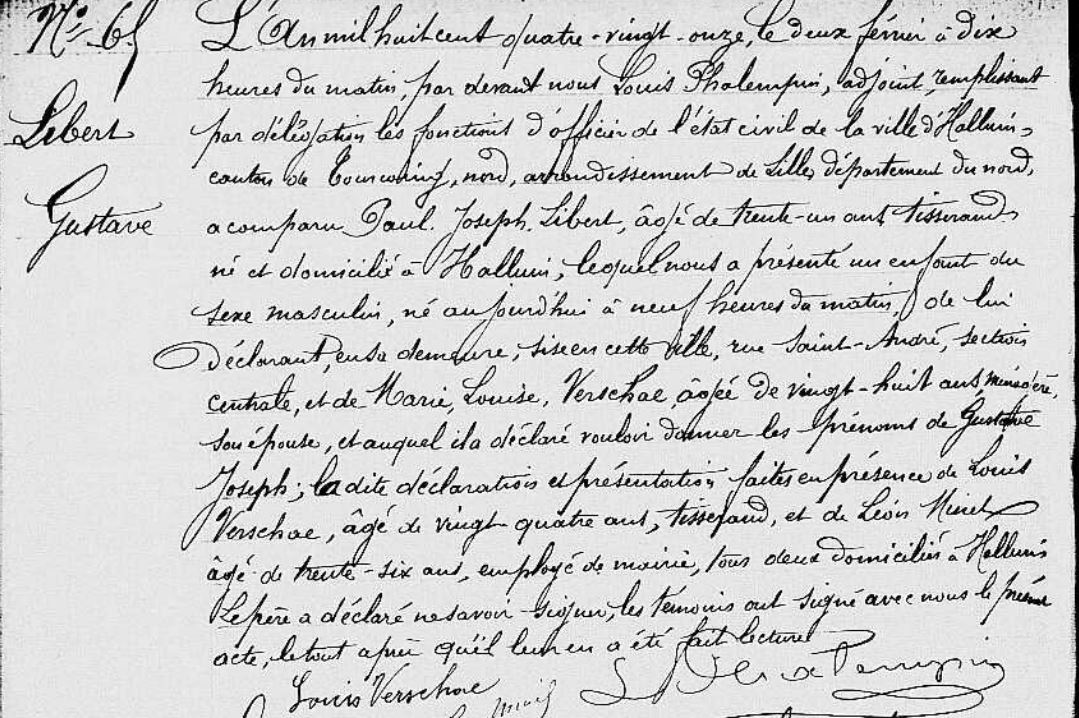 N° 65
Libert
Gustave
L'An mil huit cent quatre-vingt-onze, le deux février à dix
heures du matin, par devant nous Louis Phalempin, adjoint, remplissant
par délégation les fonctions d'officier de l'état civil de la ville d'Halluin,
canton de Tourcoing, nord, arrondissement de Lille, département du nord,
a comparu Paul. Joseph. Libert, âgé de trente-un ans, tisserand,
né et domicilié à Halluin, lequel nous a présenté un enfant du
sexe masculin, né aujourd'hui à neuf heures du matin, de lui
Déclarant, en sa demeure, sise en cette ville, rue Saint-André, section
centrale, et de Marie, Louise, Verschae, âgée de vingt-huit ans, ménagère,
son épouse, et auquel il a déclaré vouloir donner les prénoms de Gustave
Joseph; la dite déclaration et présentation faites en présence de Louis
Verschae, âgé de vingt quatre ans, tisserand, et de Léon
âgé de trente-six ans, employé de mairie, tous deux domiciliés à Halluin
Le père a déclaré ne savoir signer, les témoins ont signé avec nous le présent
acte, le tout après qu'il leur en a été fait lecture
Louis Verschae